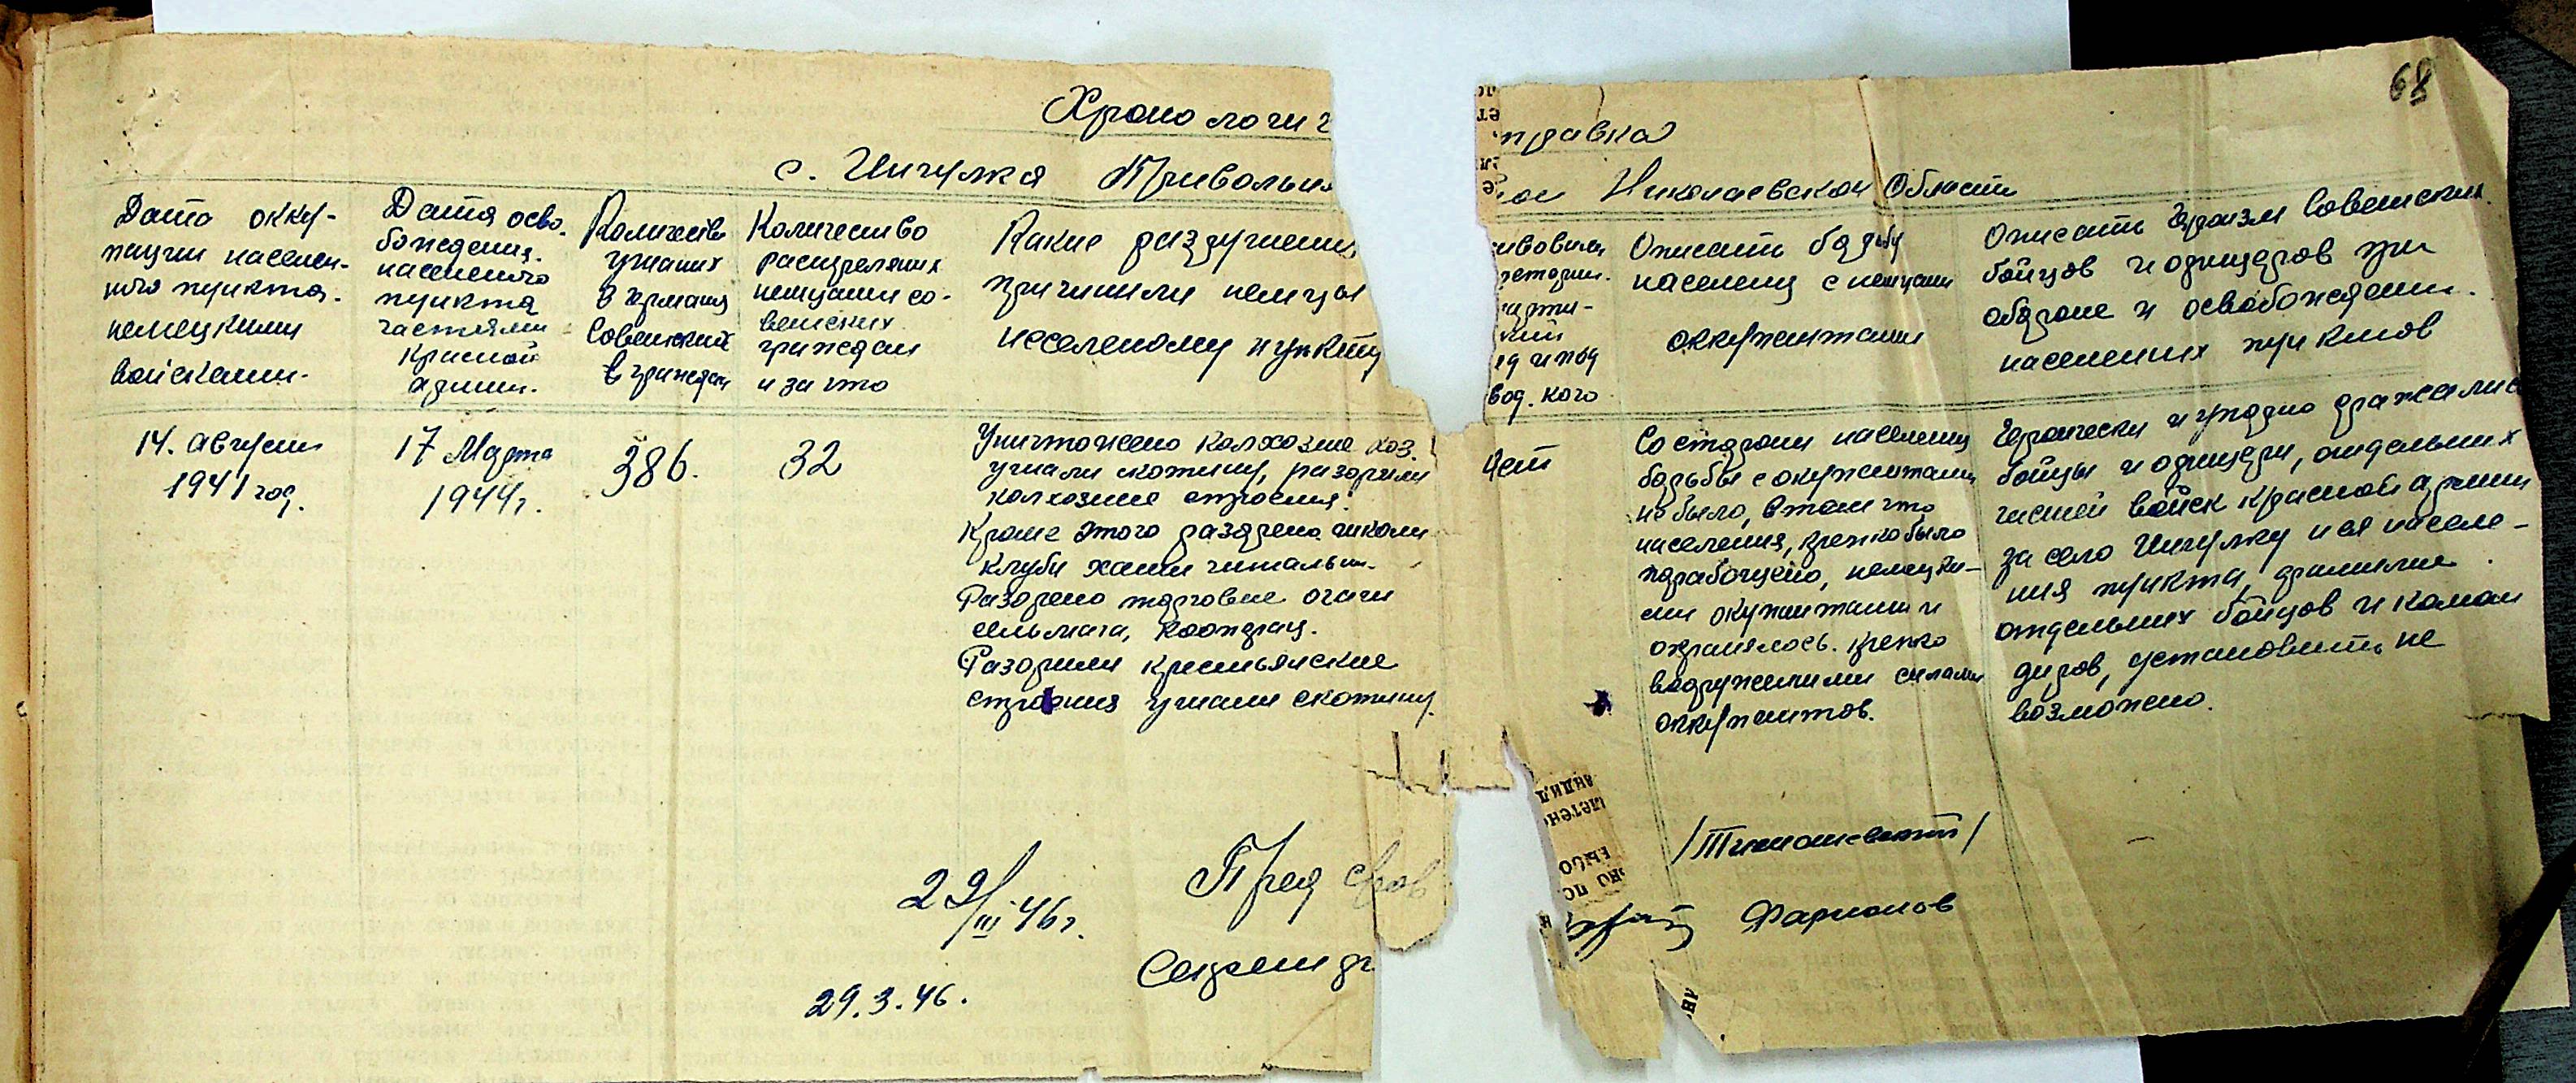 68
Хронологич
правка
с. Ингулка Привольн
Николаевской Области
Дата окку-
пации населен-
ного пункта.
немецкими
войсками.
Дата осво.
бождения.
населенного
пункта
частями
Красной
армии.
Количество
угнаных
в германию
Советских
граждан
Количество
расстреляных
немцами со-
ветских
граждан
и за что
Какие разрушения
причинили немцы
населеному пункту
парти-
вод. кого
Описать борьбу
населения с немцами
оккупантами
Описать героизм Советских
бойцов и офицеров при
обороне и освобождении.
населенных пунктов
14. августа
1941 год.
17 Марта
1944г.
386.
32
Уничтожено колхозное хоз.
угнали скотину, разорили
колхозные строения.
Кроме этого разорено школи
клуби хати читальни.
Разорено торговые очаги
сельмага, кооперац.
Разорили крестьянские
строения угнали скотину.
Нет
Со стороны населения
борьбы с окупантами
не было, в том что
население, крепко было
порабощено, немецки-
ми окупантами и
охранялось. крепко
вооруженными силами
оккупантов.
Героически и упорно дражались
бойцы и офицеры, отдельных
частей войск красной армии
за село Ингулку и ея населе-
ния пункта, фамилие
отдельных бойцов и коман
диров, установить не
возможно.
29/III 46г.
Пред с/сов
/Тимошевский/
29.3.46.
Секретар
Фарионов